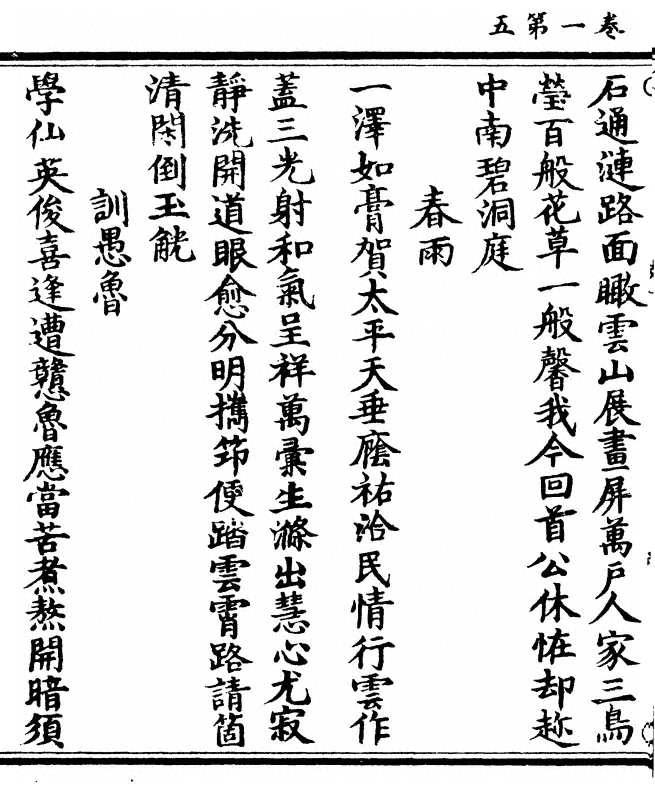 卷一第五
石通漣路面瞰雲山展畫屏萬戶人家三鳥
瑩百般花草一般馨我今回首公休恠却趂
中南碧洞庭
春雨
一澤如膏賀太平天垂廕祐洽民情行雲作
蓋三光射和氣呈祥萬彙生滌出慧心尤寂
靜洗開道眼愈分明攜笻便踏雲霄路請箇
清閑倒玉觥
訓愚魯
學仙英俊喜逢遭戇魯應當苦煮熬開暗須